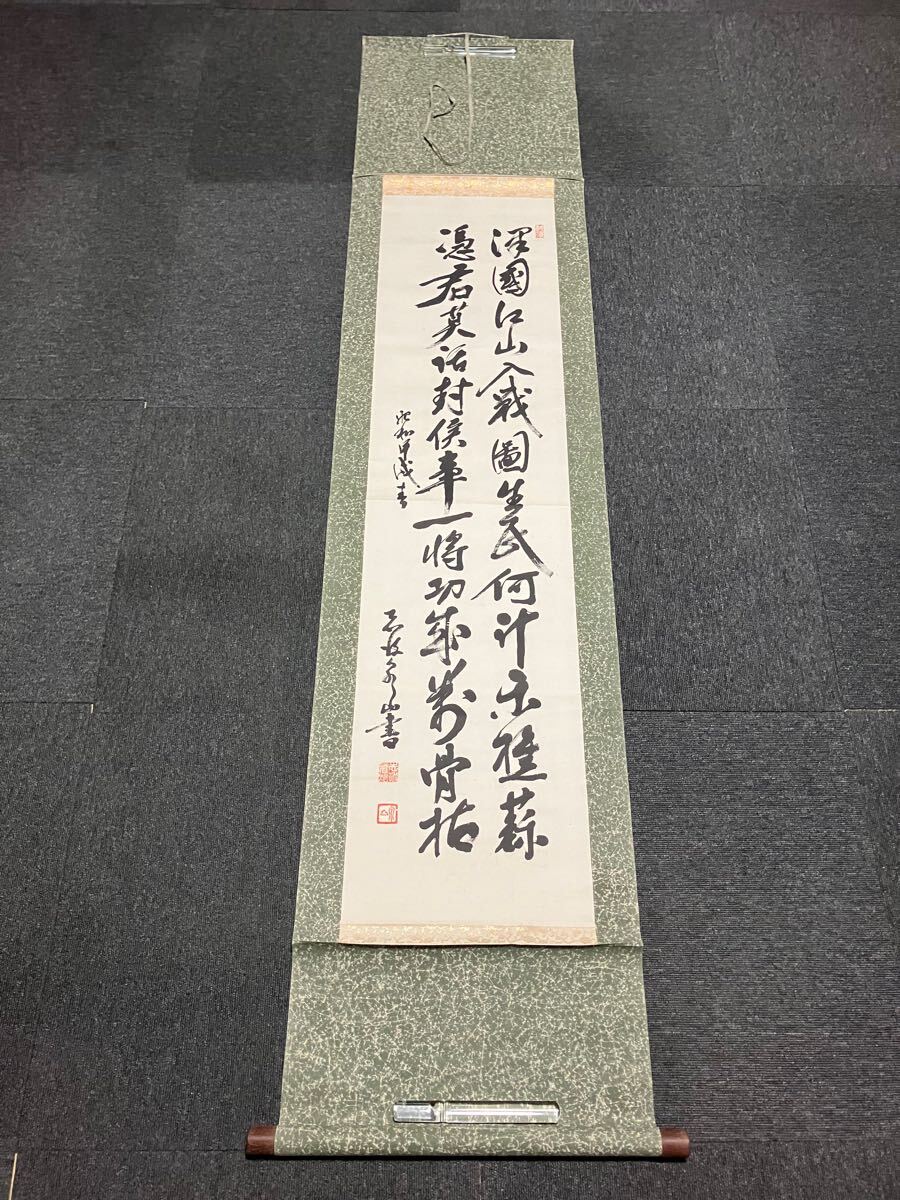 澤國江山入戰圖生民何計樂樵蘇
憑君莫話封侯事一将功成萬骨枯
昭和甲戌春
山書